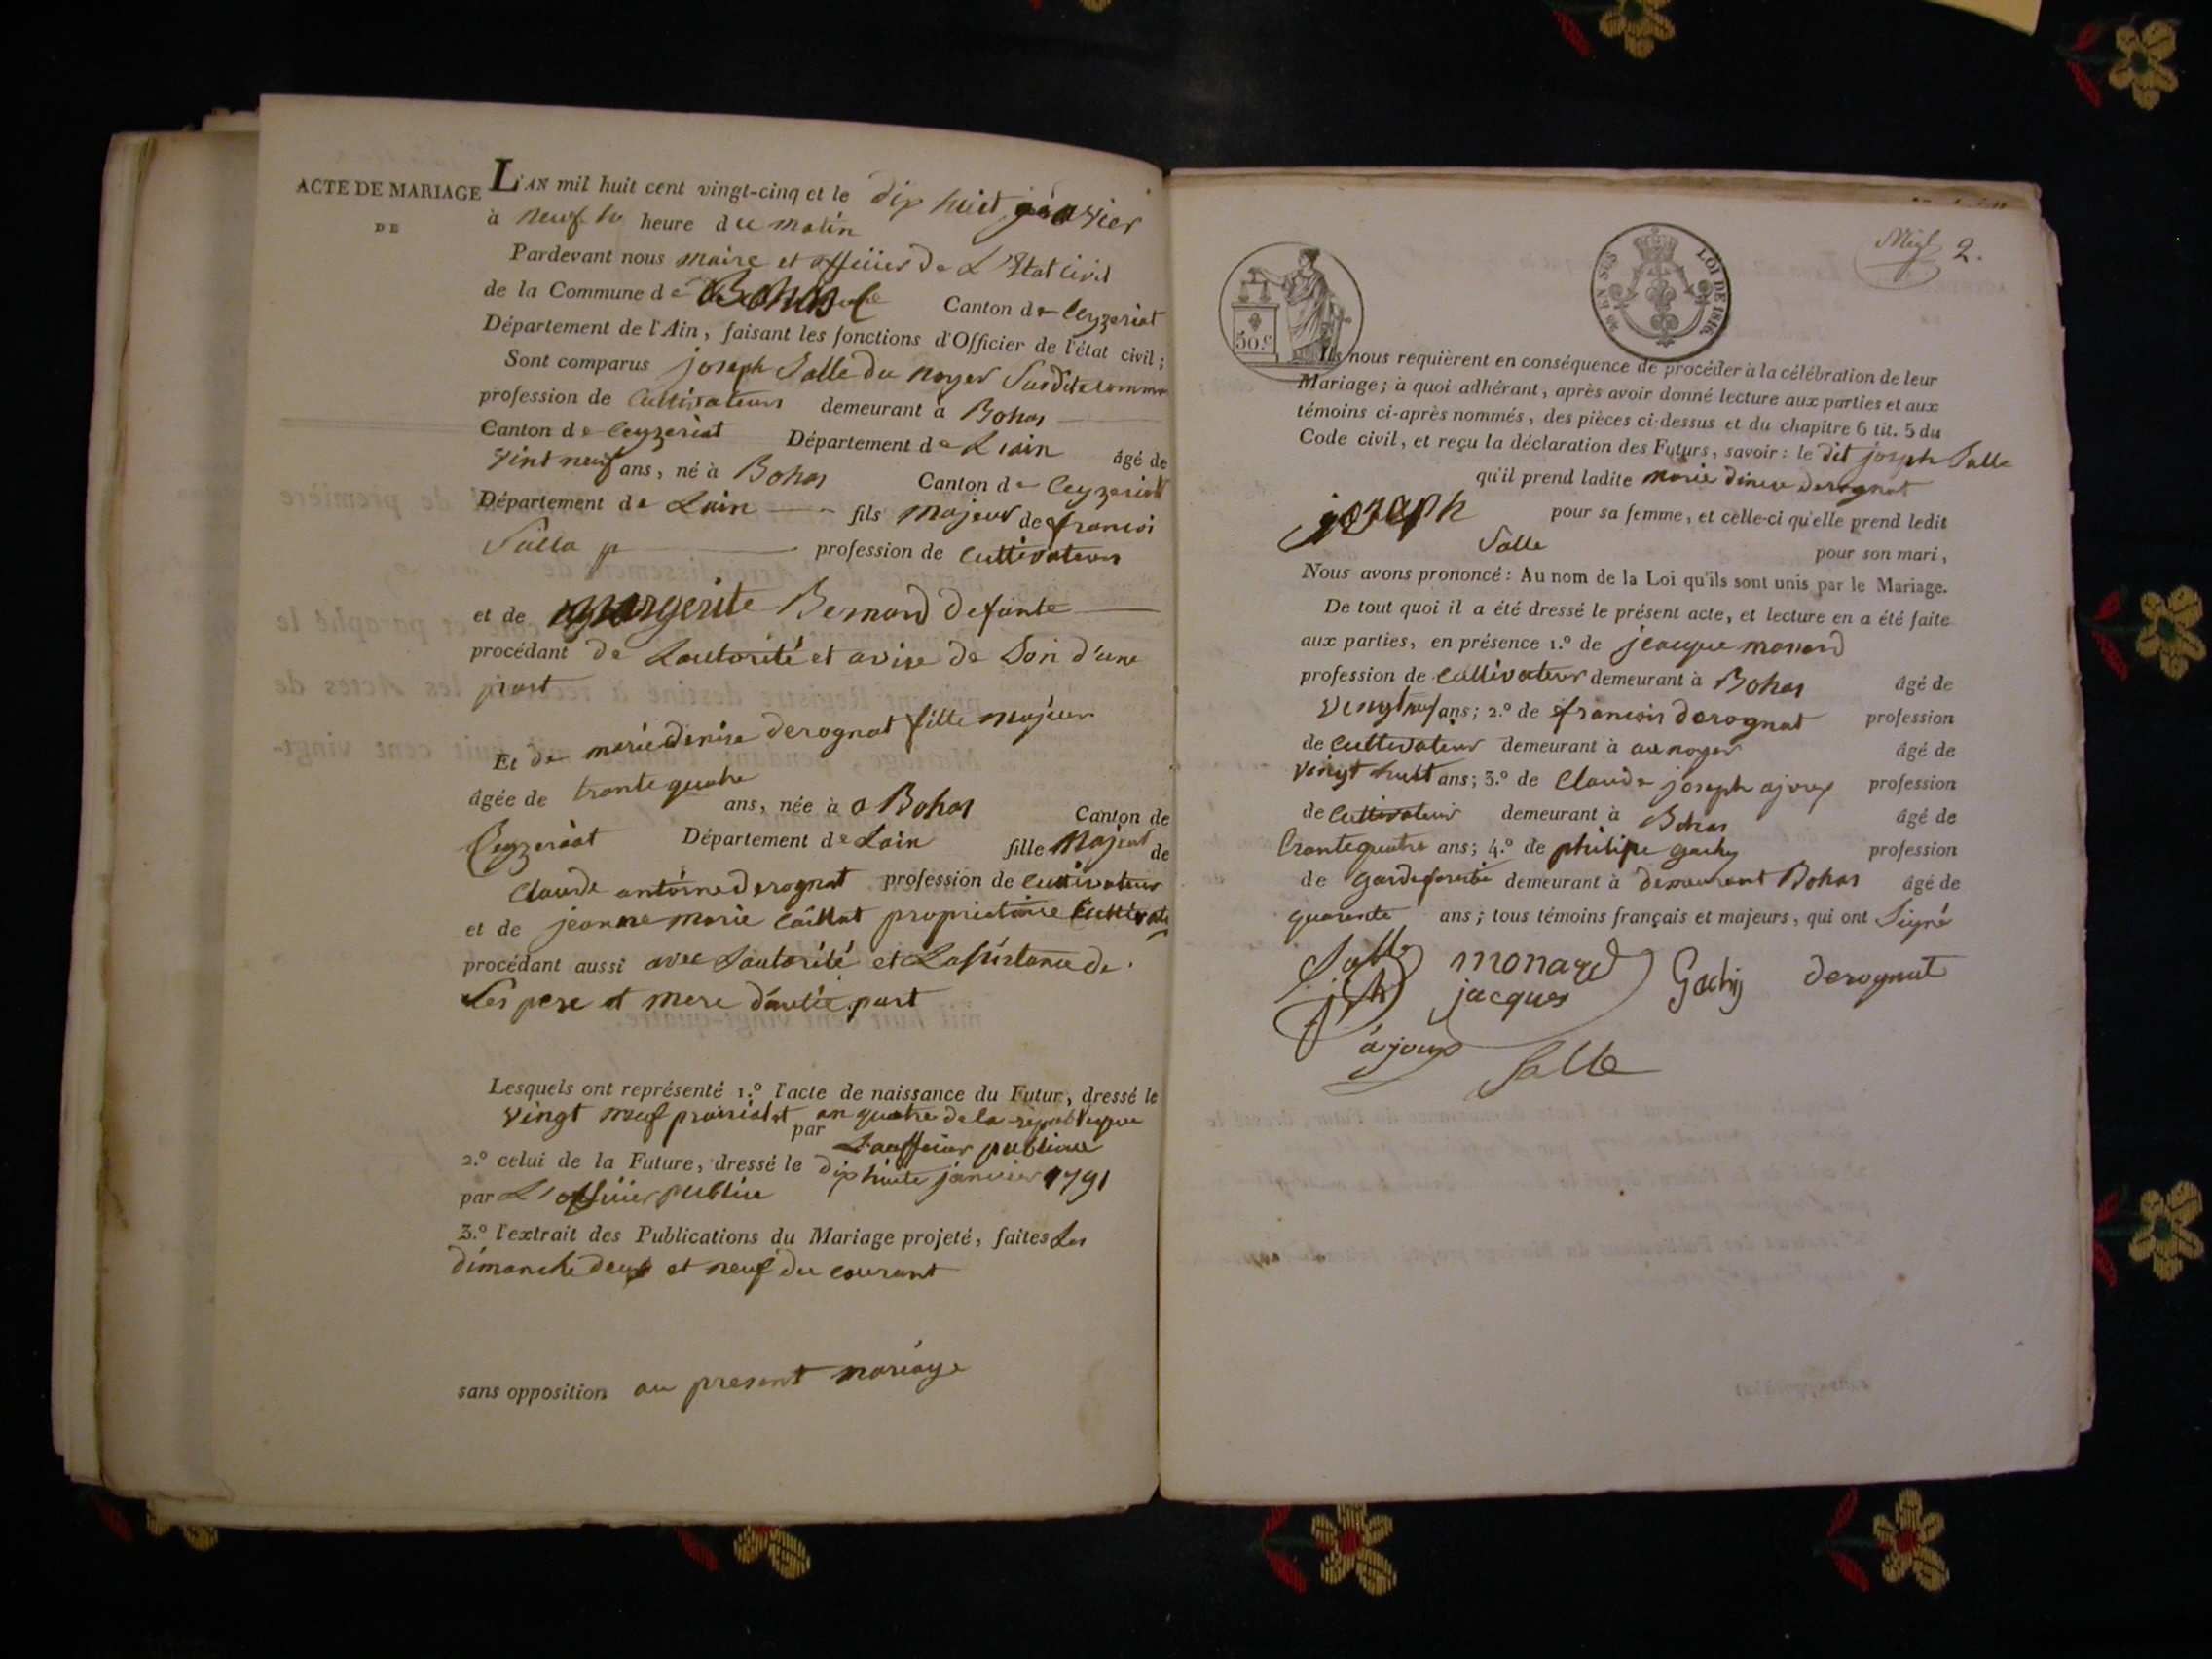 ACTE DE MARIAGE
DE
L'AN mil huit cent vingt-cinq et le dix huit janvier
à neuf heure du matin
Pardevant nous maire et officier de L'Etat Civil
de la Commune de Bohas Canton de Ceyzeriat
Département de l'Ain, faisant les fonctions d'Officier de l'état civil;
Sont comparus joseph Salle du noyer Susdite commune
profession de Cultivateurs demeurant à Bohas
Canton de Ceyzeriat Département de L'ain âgé de
vint neuf ans, né à Bohas Canton de Ceyzeriat
Département de Lain fils majeur de francois
Salla p profession de Cultivateurs
et de margerite Bernard defunte
procédant de Lautorité et avise de Son d'une
part
Et de marie denise derognat fille majeur
âgée de trante quatre
ans, née à a Bohas Canton de
Ceyzeriat Département de Lain fille Majeur de
Claude antoine derognat profession de Cultivateur
et de jeanne marie Caillat propriétaire Cultivate
procédant aussi avec Lautorité et Lasistance de
Ses pere et mere d'autre part
Lesquels ont représenté 1.º l'acte de naissance du Futur, dressé le
vingt neuf prairial an quatre de la republique
par L'aufficier publique
2.º celui de la Future, dressé le dix huite janvier 1791
par L'officier publice
3.º l'extrait des Publications du Mariage projeté, faites Les
dimanche deux et neuf du courant
sans opposition au present mariage
2.
50.c
LOI DE 1816.
Ils nous requièrent en conséquence de procéder à la célébration de leur
Mariage; à quoi adhérant, après avoir donné lecture aux parties et aux
témoins ci-après nommés, des pièces ci-dessus et du chapitre 6 tit. 5 du
Code civil, et reçu la déclaration des Futurs, savoir: le dit joseph Salle
qu'il prend ladite marie denise derognat
pour sa femme, et celle-ci qu'elle prend ledit
joseph Salle
pour son mari,
Nous avons prononcé: Au nom de la Loi qu'ils sont unis par le Mariage.
De tout quoi il a été dressé le présent acte, et lecture en a été faite
aux parties, en présence 1.º de jeacque monard
profession de Cultivateur demeurant à Bohas âgé de
vingt neuf ans; 2.º de francois derognat profession
de Cultivateur demeurant à au noyer âgé de
vingt huit ans; 3.º de Claude joseph ajoux profession
de Cultivateur demeurant à Bohas âgé de
trante quatre ans; 4.º de philipe gachy profession
de garde foretie demeurant à demeurant Bohas âgé de
quarente ans; tous témoins français et majeurs, qui ont Signé
Salle monard Gachy derognat
jph jacques
ajoux Salle